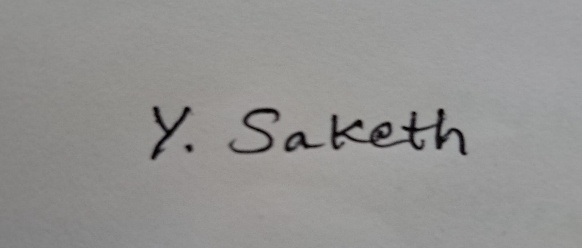 Y. Saketh